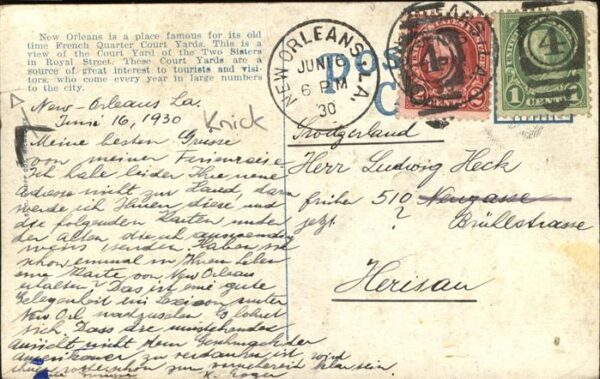 New Orleans is a place famous for its old
time French Quarter Court Yards. This is a
view of the Court Yard of the Two Sisters
in Royal Street. These Court Yards are a
source of great interest to tourists and visi-
tors, who come every year in large numbers
to the city.
New-Orleans La.
Juni 16, 1930
Knick
Meine besten Grüsse
von meiner Ferienreise.
Ich habe leider Ihre neue
Adresse nicht zur Hand, darum
werde ich Ihnen diese und
die folgenden Karten unter
der Alten, die ich
senden. Haben sie
schon einmal in Ihrem Leben
eine Karte von New Orleans
erhalten? Das ist eine gute
Gelegenheit ein Lexicon unter
New Orl nachzusehen. Es lohnt
sich. Dass die umstehende
Ansicht nicht dem Geschmack der
Amerikaner zu verdanken ist, wird
Ihnen klar sein.
NEW ORLEANS, LA.
JUN 16
6 PM
30
POS
C
4
1 CENT 1
Switzerland
Herr Ludwig Heck
früher 510 Neugasse
jetzt ? Brühlstrasse
Herisau